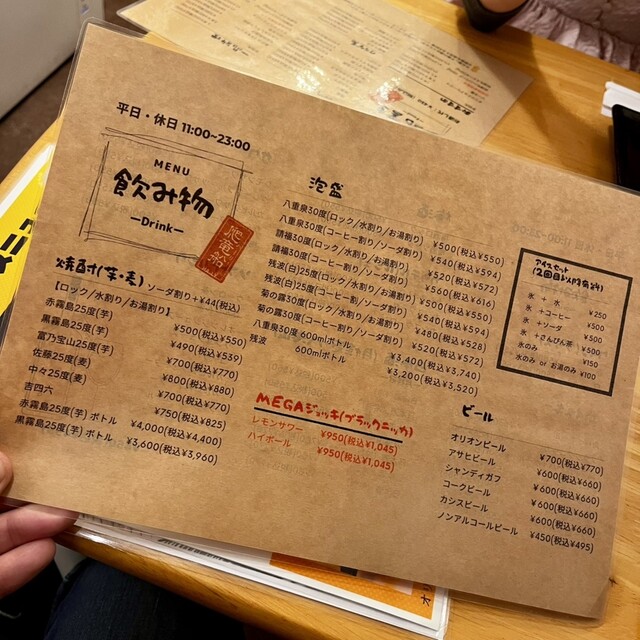 平日・休日 11:00~23:00
MENU
飲み物
ーDrinkー
焼酎(芋・麦) ソーダ割り+¥44(税込)
【ロック/水割り/お湯割り】
赤霧島25度(芋) ¥500(税込¥550)
黒霧島25度(芋) ¥490(税込¥539)
富乃宝山25度(芋) ¥700(税込¥770)
佐藤25度(麦) ¥800(税込¥880)
中々25度(麦) ¥700(税込¥770)
吉四六 ¥750(税込¥825)
赤霧島25度(芋) ボトル ¥4,000(税込¥4,400)
黒霧島25度(芋) ボトル ¥3,600(税込¥3,960)
泡盛
八重泉30度(ロック/水割り/お湯割り) ¥500(税込¥550)
八重泉30度(コーヒー割り/ソーダ割り) ¥540(税込¥594)
請福30度(ロック/水割り/お湯割り) ¥520(税込¥572)
請福30度(コーヒー割り/ソーダ割り) ¥560(税込¥616)
残波(白)25度(ロック/水割り/お湯割り) ¥500(税込¥550)
残波(白)25度(コーヒー割/ソーダ割り) ¥540(税込¥594)
菊の露30度(ロック/水割り/お湯割り) ¥480(税込¥528)
菊の露30度(コーヒー割り/ソーダ割り) ¥520(税込¥572)
八重泉30度 600mlボトル ¥3,400(税込¥3,740)
残波 600mlボトル ¥3,200(税込¥3,520)
MEGAジョッキ(ブラックニッカ)
レモンサワー ¥950(税込¥1,045)
ハイボール ¥950(税込¥1,045)
アイスセット
(2回目以降有料)
氷 + 水 ¥250
氷 +コーヒー ¥500
氷 +ソーダ ¥500
氷 +さんぴん茶 ¥500
氷のみ ¥150
水のみ or お湯のみ ¥100
ビール
オリオンビール ¥700(税込¥770)
アサヒビール ¥600(税込¥660)
シャンディガフ ¥600(税込¥660)
コークビール ¥600(税込¥660)
カシスビール ¥600(税込¥660)
ノンアルコールビール ¥450(税込¥495)